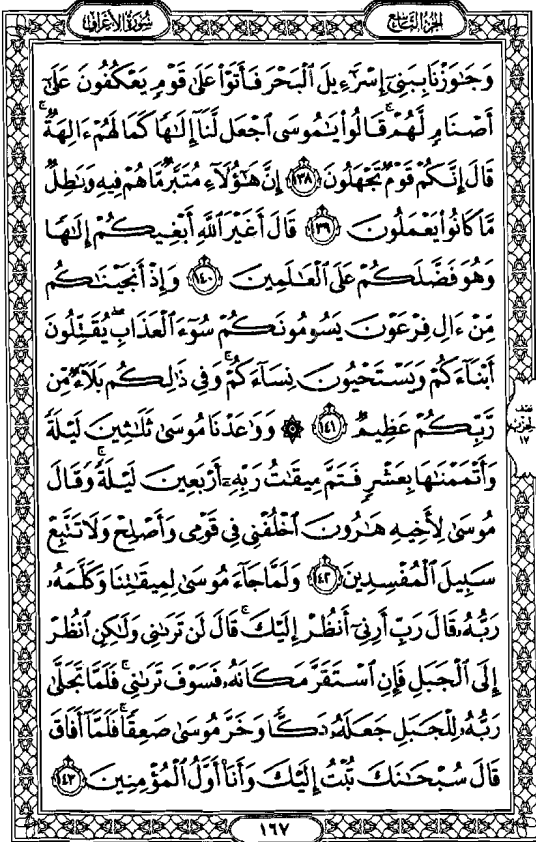 الجزء التاسع
سورة الأعراف
وَجَٰوَزْنَا بِبَنِىٓ إِسْرَٰٓءِيلَ ٱلْبَحْرَ فَأَتَوْا۟ عَلَىٰ قَوْمٍ يَعْكُفُونَ عَلَىٰٓ
أَصْنَامٍ لَّهُمْ ۚ قَالُوا۟ يَٰمُوسَى ٱجْعَل لَّنَآ إِلَٰهًا كَمَا لَهُمْ ءَالِهَةٌ ۚ
قَالَ إِنَّكُمْ قَوْمٌ تَجْهَلُونَ ﴿١٣٨﴾ إِنَّ هَٰٓؤُلَآءِ مُتَبَّرٌ مَّا هُمْ فِيهِ وَبَٰطِلٌ
مَّا كَانُوا۟ يَعْمَلُونَ ﴿١٣٩﴾ قَالَ أَغَيْرَ ٱللَّهِ أَبْغِيكُمْ إِلَٰهًا
وَهُوَ فَضَّلَكُمْ عَلَى ٱلْعَٰلَمِينَ ﴿١٤٠﴾ وَإِذْ أَنجَيْنَٰكُم
مِّنْ ءَالِ فِرْعَوْنَ يَسُومُونَكُمْ سُوٓءَ ٱلْعَذَابِ ۖ يُقَتِّلُونَ
أَبْنَآءَكُمْ وَيَسْتَحْيُونَ نِسَآءَكُمْ ۚ وَفِى ذَٰلِكُم بَلَآءٌ مِّن
رَّبِّكُمْ عَظِيمٌ ﴿١٤١﴾ ۞ وَوَٰعَدْنَا مُوسَىٰ ثَلَٰثِينَ لَيْلَةً
وَأَتْمَمْنَٰهَا بِعَشْرٍ فَتَمَّ مِيقَٰتُ رَبِّهِۦٓ أَرْبَعِينَ لَيْلَةً ۚ وَقَالَ
مُوسَىٰ لِأَخِيهِ هَٰرُونَ ٱخْلُفْنِى فِى قَوْمِى وَأَصْلِحْ وَلَا تَتَّبِعْ
سَبِيلَ ٱلْمُفْسِدِينَ ﴿١٤٢﴾ وَلَمَّا جَآءَ مُوسَىٰ لِمِيقَٰتِنَا وَكَلَّمَهُۥ
رَبُّهُۥ قَالَ رَبِّ أَرِنِىٓ أَنظُرْ إِلَيْكَ ۚ قَالَ لَن تَرَىٰنِى وَلَٰكِنِ ٱنظُرْ
إِلَى ٱلْجَبَلِ فَإِنِ ٱسْتَقَرَّ مَكَانَهُۥ فَسَوْفَ تَرَىٰنِى ۚ فَلَمَّا تَجَلَّىٰ
رَبُّهُۥ لِلْجَبَلِ جَعَلَهُۥ دَكًّا وَخَرَّ مُوسَىٰ صَعِقًا ۚ فَلَمَّآ أَفَاقَ
قَالَ سُبْحَٰنَكَ تُبْتُ إِلَيْكَ وَأَنَا۠ أَوَّلُ ٱلْمُؤْمِنِينَ ﴿١٤٣﴾
نصف
الحزب
١٧
١٦٧